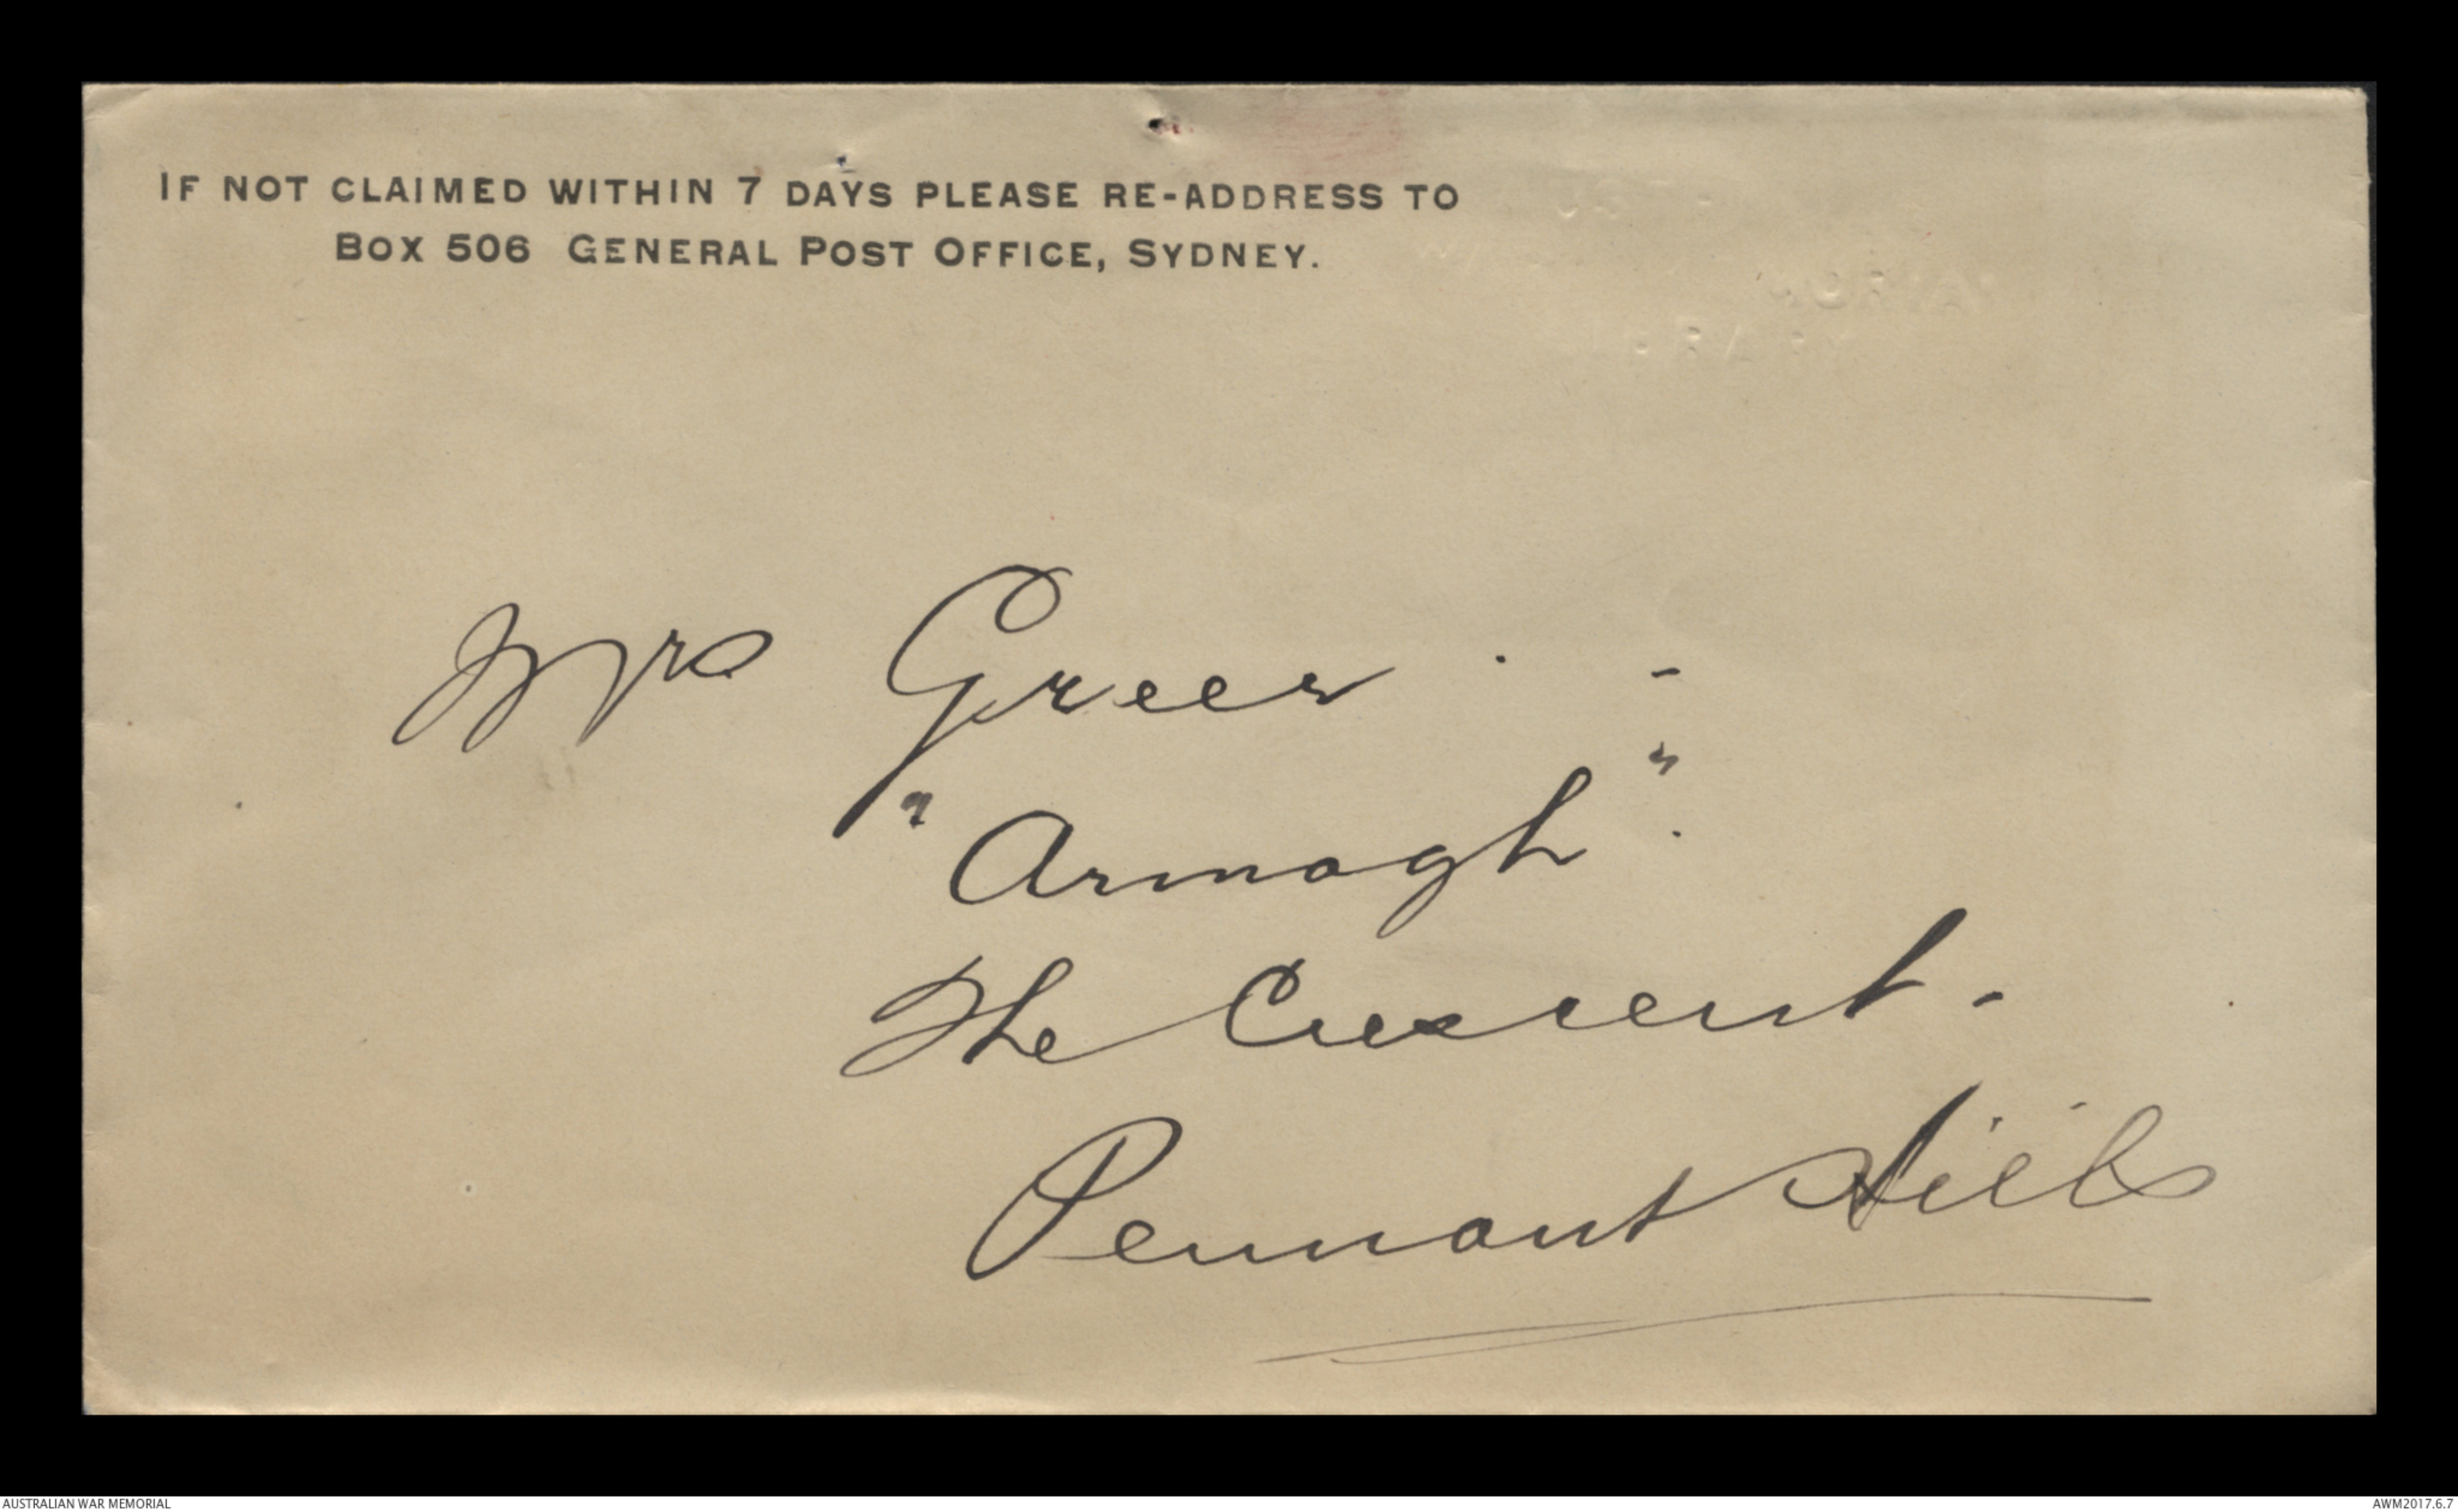 IF NOT CLAIMED WITHIN 7 DAYS PLEASE RE-ADDRESS TO
BOX 506 GENERAL POST OFFICE, SYDNEY.
Mrs Greer. -
"Armagh".
The Crescent -
Pennant Hills
AUSTRALIAN WAR MEMORIAL
AWM2017.6.7